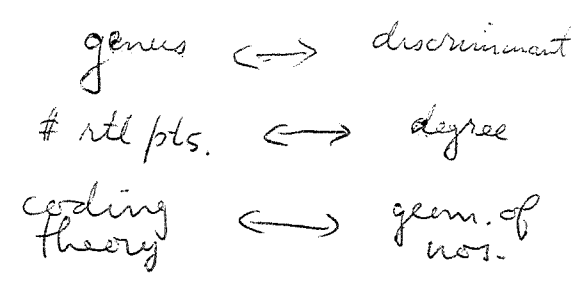 genus ↔ discriminant
# rtl pts. ↔ degree
coding ↔ geom. of
theory nos.